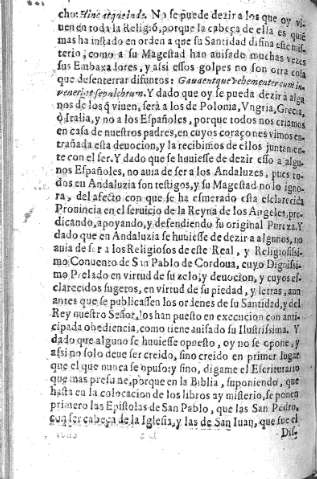 cho: Hinc atquè inde. No se puede dezir a los que oy vi-
uen en toda la Religiõ, porque la cabeça de ella es quiẽ
mas ha instado en orden a que su Santidad difina este mis-
terio, como a su Magestad han auisado muchas vezes
sus Embaxadores, y assi essos golpes no son otra cosa
que desenterrar difuntos: Gaudentque vehementer cum in-
venerint sepulchrum. Y dado que oy se pueda dezir a algu
nos de los q̃ viuen, serà a los de Polonia, Vngria, Grecia,
ò Italia, y no a los Españoles, porque todos nos criamos
en casa de nuestros padres, en cuyos coraçones vimos en-
trañada esta deuocion, y la recibimos de ellos juntamen-
te con el ser. Y dado que se huuiesse de dezir esso a algu-
nos Españoles, no auia de ser a los Andaluzes, pues to-
dos en Andaluzia son testigos, y su Magestad no lo igno-
ra, del afecto con que se ha esmerado esta esclarecida
Prouincia en el seruicio de la Reyna de los Angeles, pre-
dicando, apoyando, y defendiendo su original Pureza. Y
dado que en Andaluzia se huuiesse de dezir a algunos, no
auia de ser a los Religiosos de este Real, y Religiosissi-
mo Conuento de San Pablo de Cordoua, cuyo Dignissi-
mo Prelado en virtud de su zelo, y deuocion, y cuyos es-
clarecidos sugetos, en virtud de su piedad, y letras, aun
antes que se publicassen los ordenes de su Santidad, y del
Rey nuestro Señor, los han puesto en execucion con anti-
cipada obediencia, como tiene auisado su Ilustrissima. Y
dado que alguno se huuiesse opuesto, oy no se opone, y
assi no solo deue ser creido, sino creido en primer lugar
que el que nunca se opuso: y sino, digame el Escriturario
que mas presume, porque en la Biblia, suponiendo, que
hasta en la colocacion de los libros ay misterio, se ponen
primero las Epistolas de San Pablo, que las San Pedro,
con ser cabeça de la Iglesia, y las de San Iuan, que fue el
Dis-